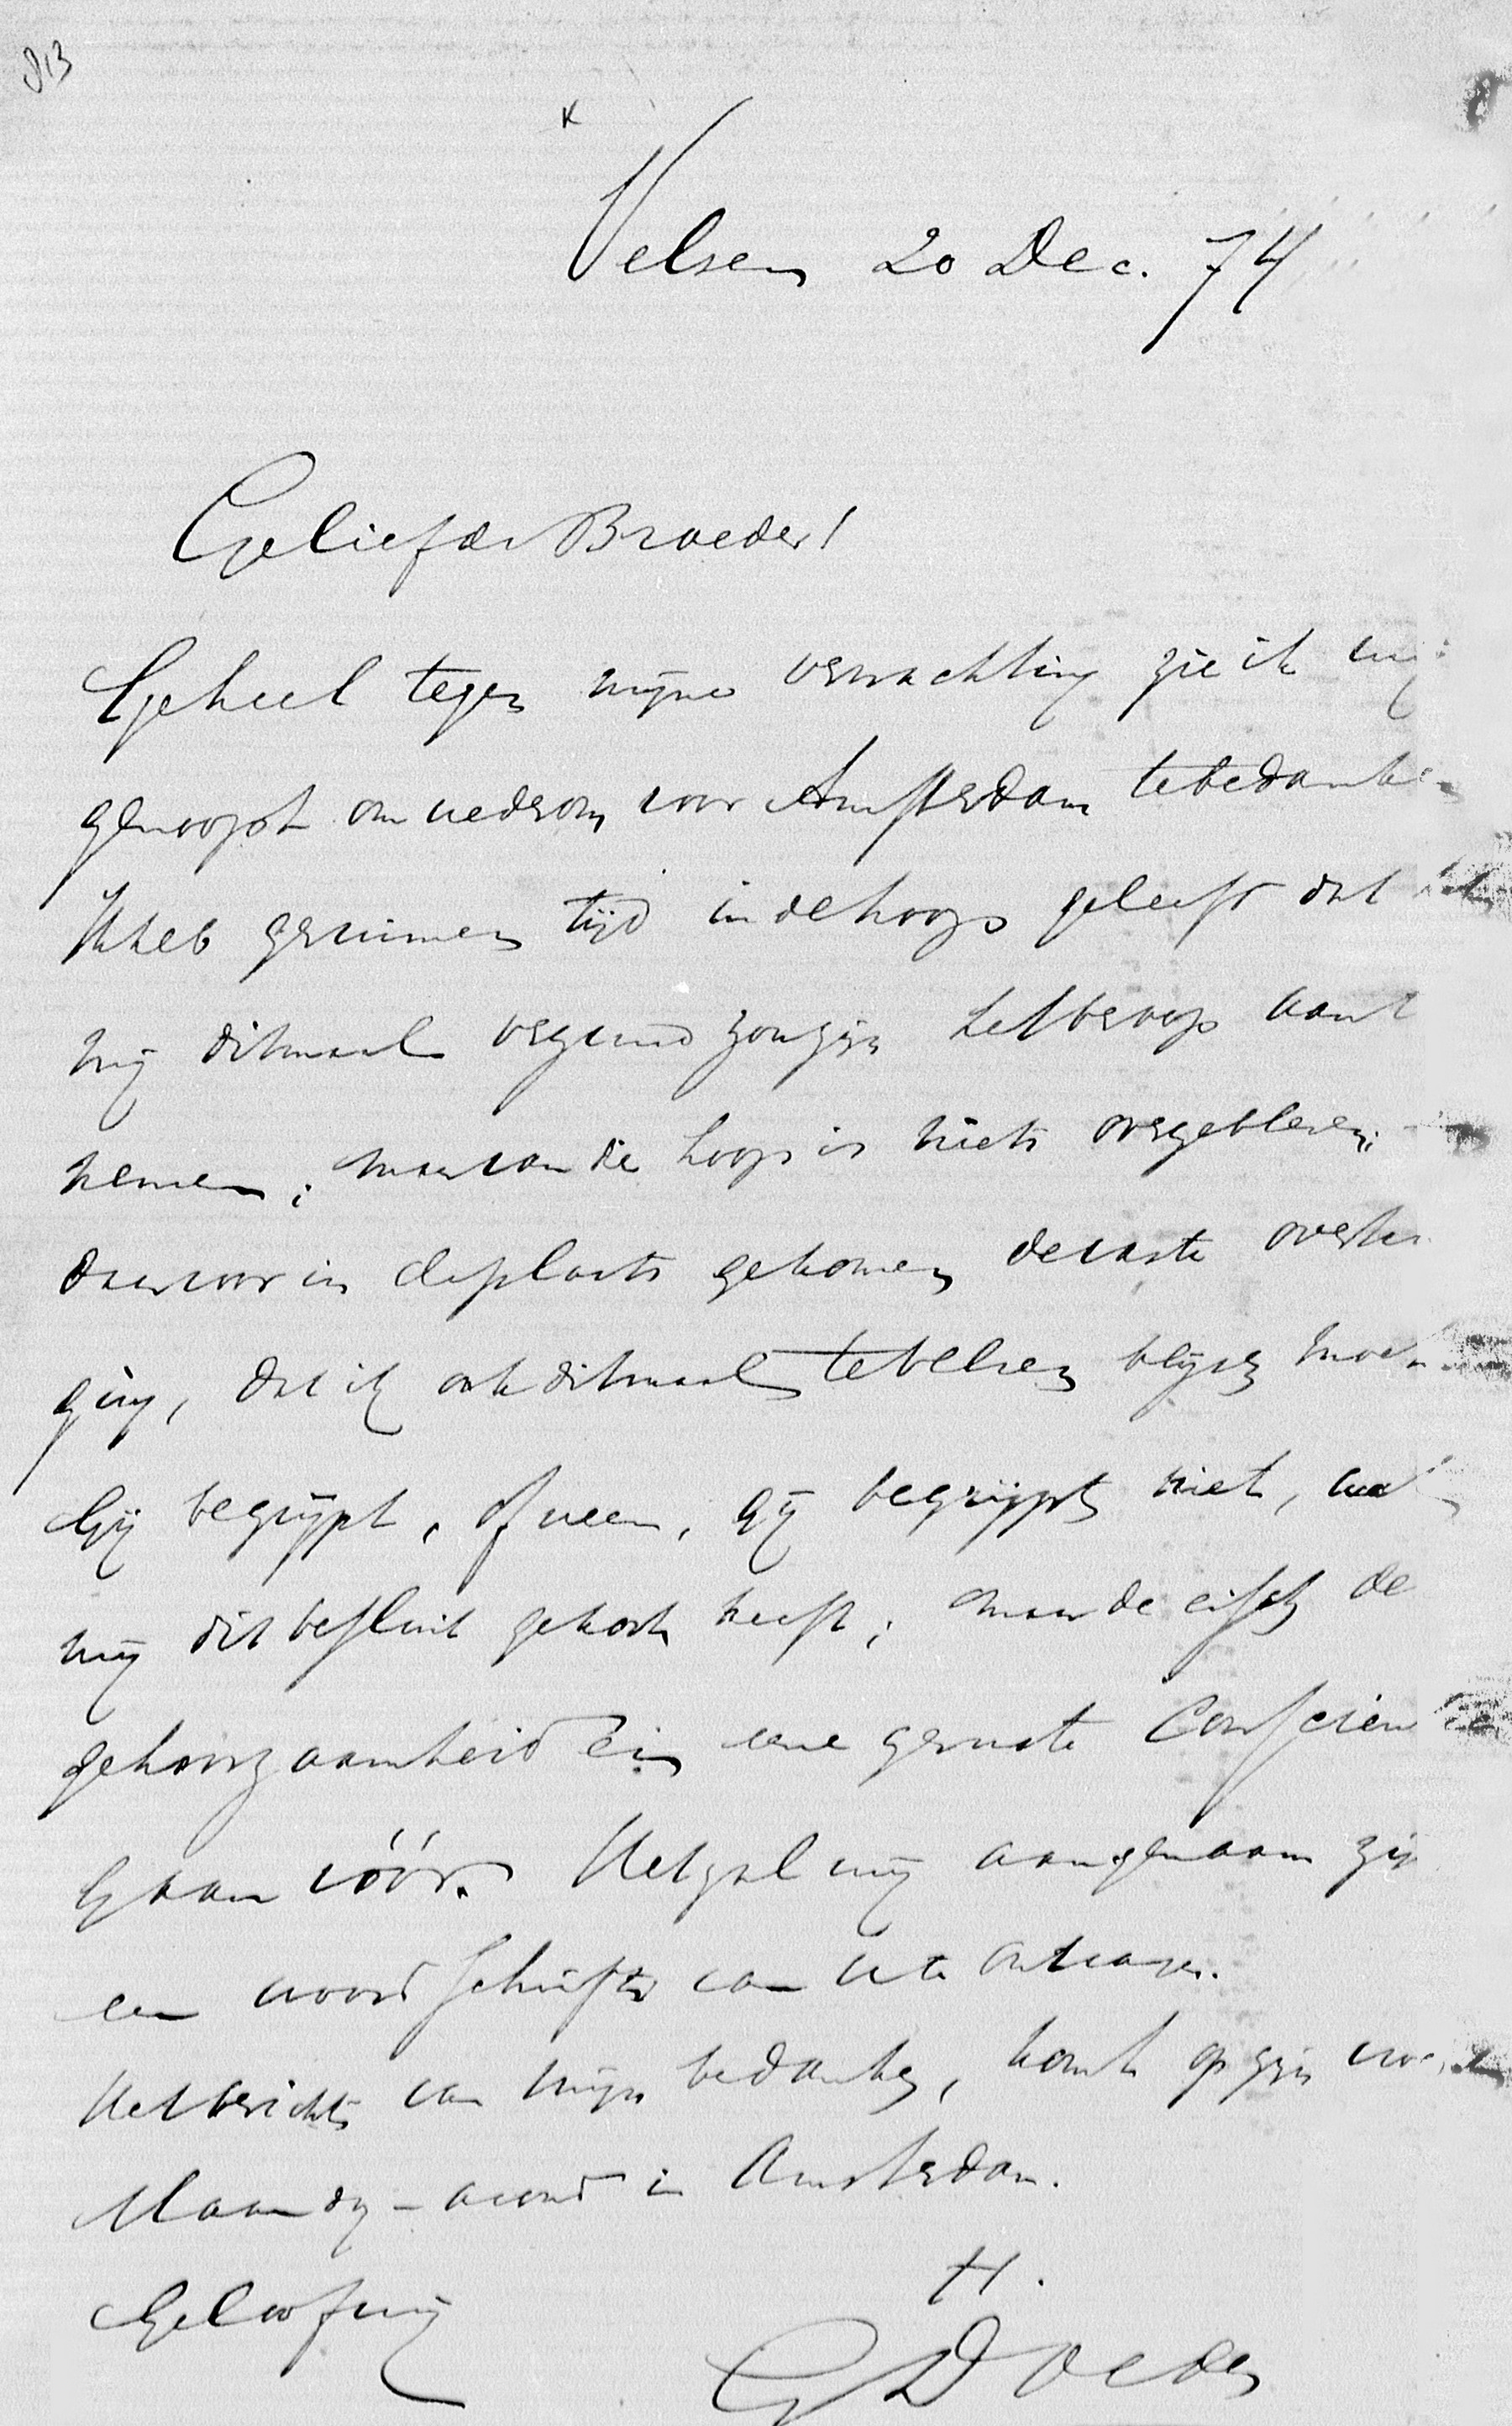 813
K
Velsen 20 Dec. 74
Geliefde Broeder!
Geheel tegen mijne verwachting zie ik mij
genoopt om wederom voor Amsterdam te bedanken
Ik heb geruimen tijd in de hoop geleefd dat het
mij ditmaal vergund zou zijn het beroep aan te
nemen; maar van die hoop is niets overgebleven;
daarvoor in de plaats gekomen de vaste overtui
ging, dat ik ook ditmaal te Velsen blijven moet.
Gij begrijpt, of neen, gij begrijpt niet, wat
mij dit besluit gekost heeft; maar de eisch der
gehoorzaamheid en eene geruste Conscientie
gaan vóór. Het zal mij aangenaam zijn
een woord schrifts van U te ontvangen.
Het bericht van mijn bedanken, komt op zijn vroegst
Maandag-avond in Amsterdam.
Geloof mij
H.
G Doedes